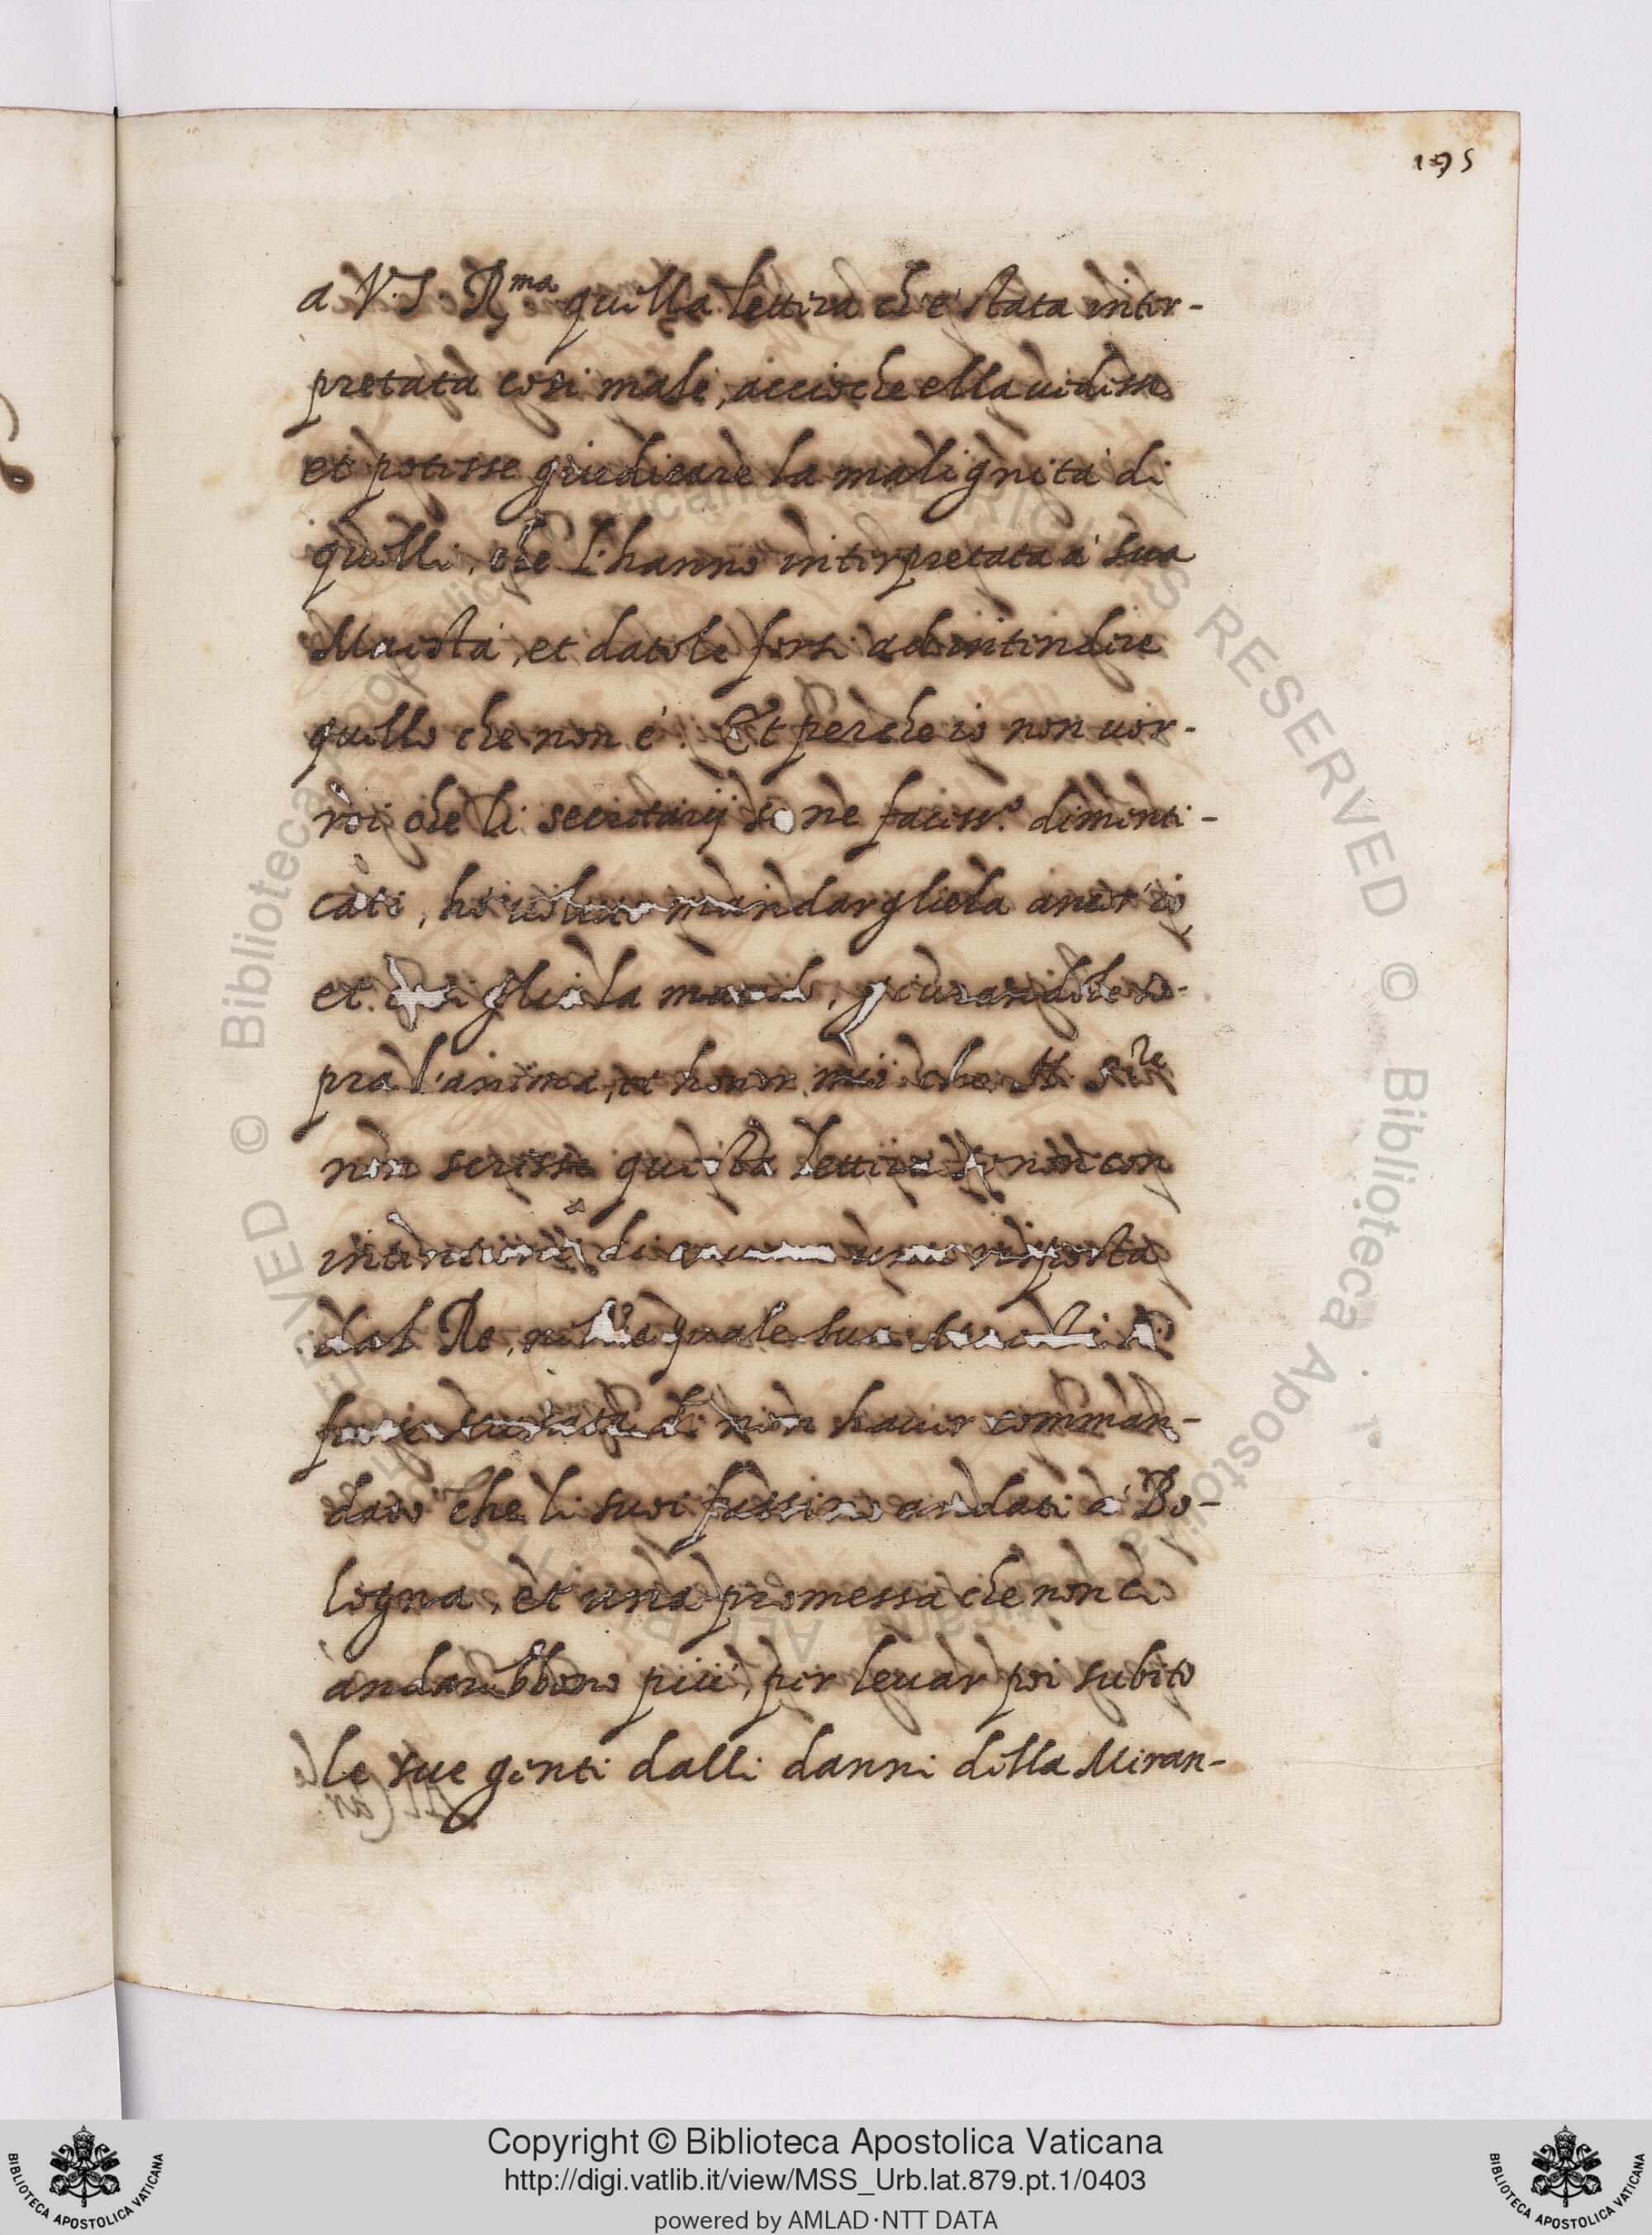 195
a V. S. R.ma quella lettera ch'è stata inter-
pretata cosi male, accioche ella uedesse
et potesse giudicare la malignità di
quelli, che l'hanno interpretata à sua
Maestà, et datole forsi ad intendere
quello che non è. Et perche io non uor-
rei che li secretarij se ne facess.o dimenti-
cati, ho uoluto mandargliela ancor'io
et glie la mando, giurandole so-
pra l'anima, et honor mio che N. S.re
non scrisse questa lettera se non con
intentione di una risposta
dal Re, nella quale sua
scusata di non hauer comman-
dato che li suoi fussino andati à Bo-
logna, et una promessa che non ci
andarebbono più, per leuar poi subito
le sue genti dalli danni della Miran-
Copyright © Biblioteca Apostolica Vaticana
http://digi.vatlib.it/view/MSS_Urb.lat.879.pt.1/0403
powered by AMLAD·NTT DATA
BIBLIOTECA APOSTOLICA VATICANA
BIBLIOTECA APOSTOLICA VATICANA